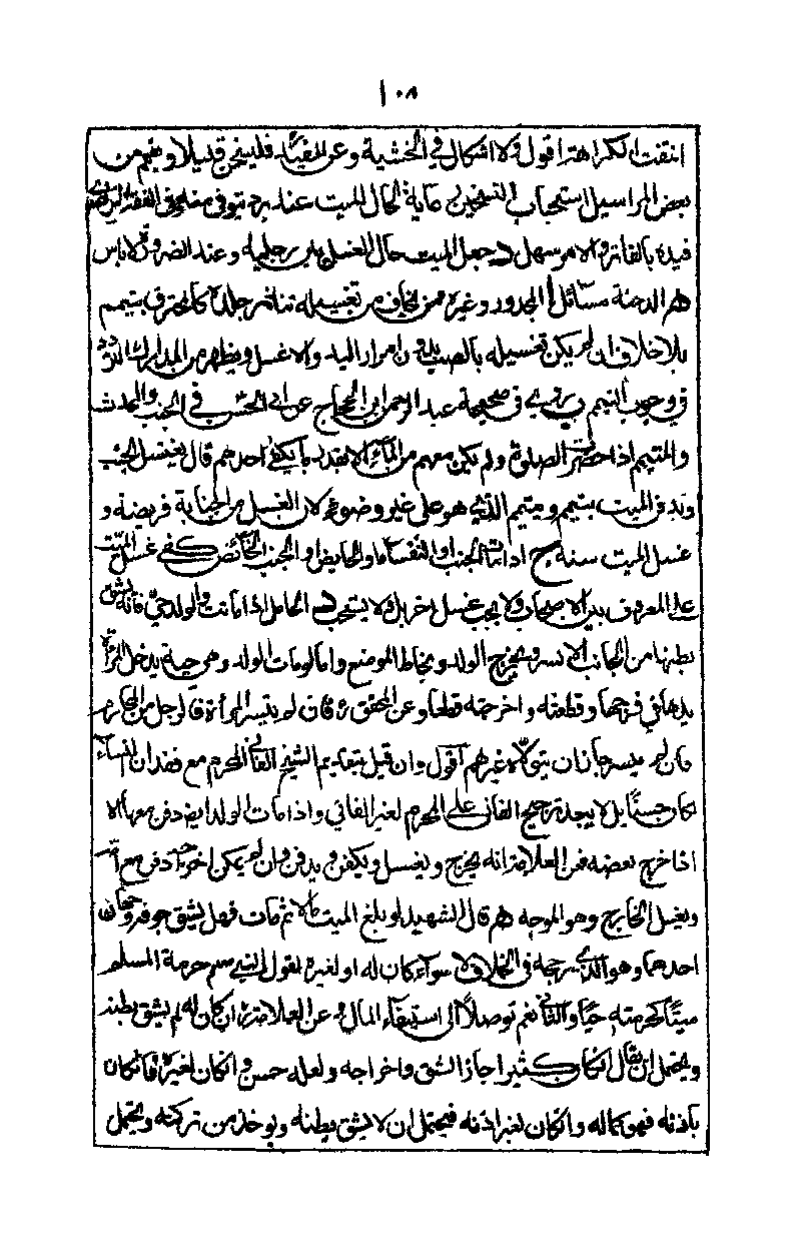 ١٠٨
انتفت الكراهة اقول ولا اشكال في الخشية وعن المفيد فليسخن قليلا ويفهم من
بعض المراسيل استحباب التسخين رعاية لحال الميت عند برد توقى
فيه بالفاتر والامر سهل د جعل الميت حال الغسل بين رجليه وعند الضرورة لا باس
مسائل ا المجدور وغيره ممن يخاف من تغسيله تناثر جلده كالمحترق يتيمم
بلا خلاف ان لم يكن تغسيله بالصب بدون امرار اليد والا غسل ويظهر من المدارك التردد
في وجوب التيمم ب روى في صحيحة عبد الرحمن ابن الحجاج عن ابي الحسن في الجنب والمحدث
والميت اذا حضرت الصلوة ولم يكن معهم من الماء الا بقدر ما يكفي احدهم قال يغتسل الجنب
ويدفن الميت بتيمم ويتيمم الذي هو على غير وضوء لان الغسل من الجنابة فريضة و
غسل الميت سنة ج اذا مات الجنب او النفساء او الحايض او الجنب الحائض كفى غسل الميت
على المعروف بين الاصحاب ولا يجب غسل اخر بل ولا يستحب د الحامل اذا ماتت والولد حي فانه يشق
بطنها من الجانب الايسر ويخرج الولد ويخاط الموضع واما لو مات الولد وهي حية يدخل المرأة
يدها في فرجها وقطعته واخرجته قطعا وعن المحقق ره فان لم يتيسر المرأة فالرجل من المحارم
فان لم يتيسر جاز ان يتولاه غيرهم اقول وان قيل بتقديم الشيخ الفاني المحرم مع فقدان النساء
لكان حسنا بل لا يبعد ترجيح الفاني على المحرم لغير الفاني واذا مات الولد ايضا دفن معها الا
اذا خرج بعضه فعن العلامة انه يخرج ويغسل ويكفن ويدفن وان لم يمكن اخراجه دفن مع امه
ويغسل الخارج وهو الموجه قال الشهيد لو بلغ الميت مالا ثم مات فهل يشق جوفه وجهان
احدهما وهو الذي رجحه في الخلاف لا سواء كان له او لغيره لقول النبي حرمة المسلم
ميتا كحرمته حيا والثاني نعم توصلا الى استيفاء المال وعن العلامة ان كان له لم يشق بطنه
ويحتمل ان يقال انكان كثيرا جاز الشق واخراجه ولعله حسن وانكان لغيره فانكان
باذنه فهو كماله وانكان بغير اذنه فيحتمل ان لا يشق بطنه ويؤخذ من تركته ويحتمل